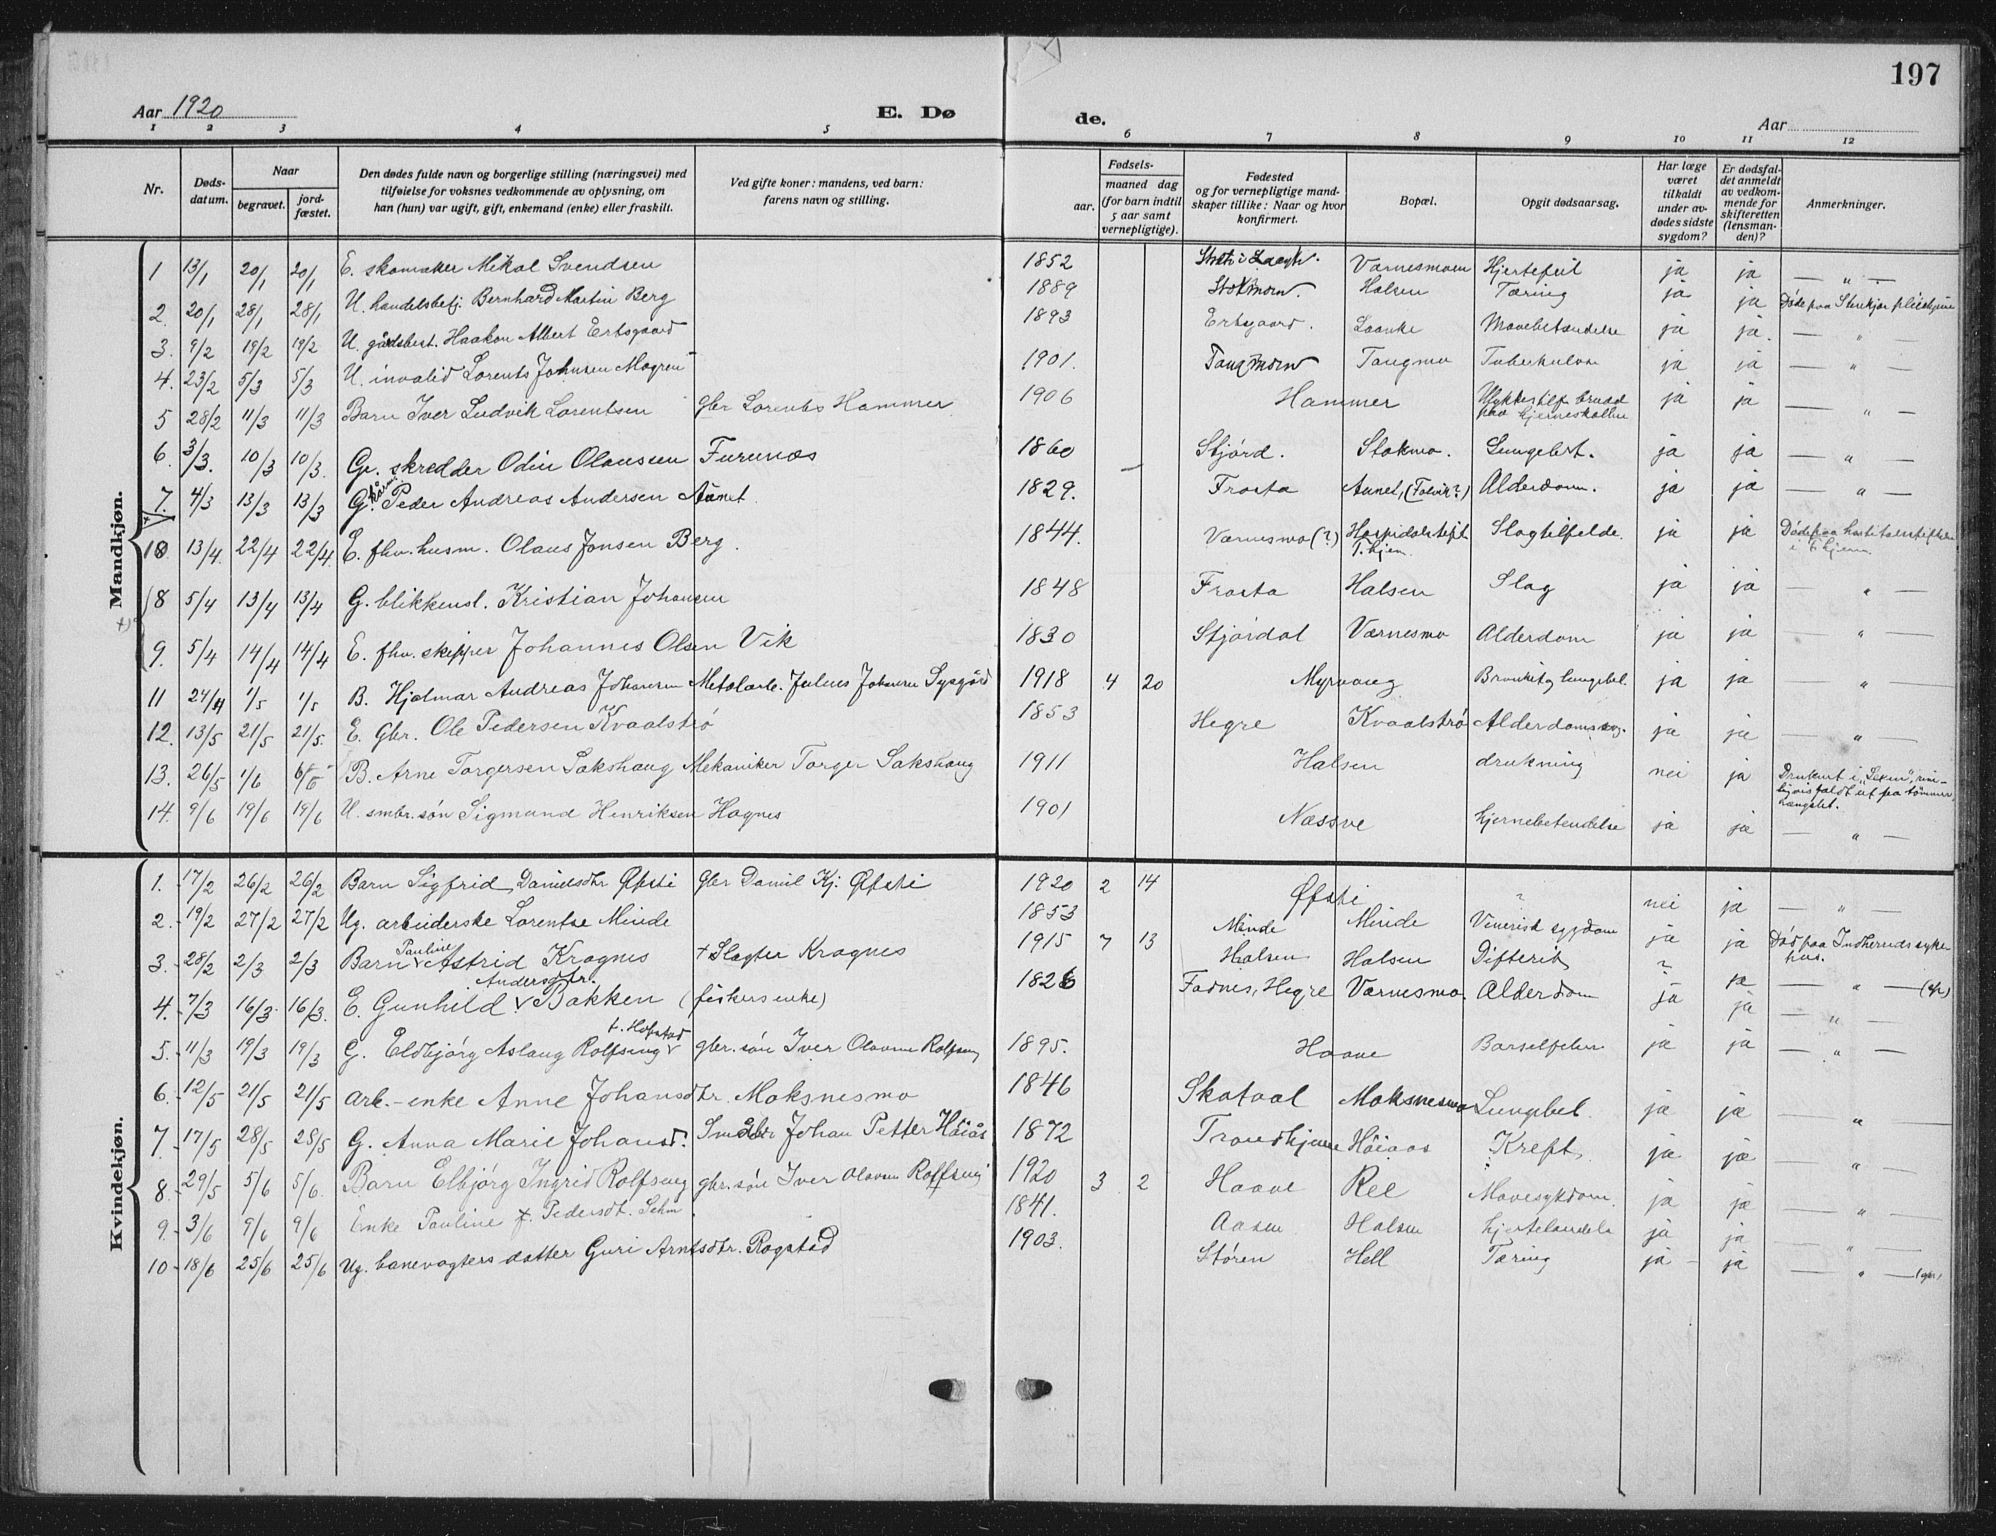 197
Aar 1920
E. Dø
de.
Aar
1 2 3 4 5 6 7 8 9 10 11 12
Nr.
Døds-
datum.
Naar
begravet.
jord-
fæstet.
Den dødes fulde navn og borgerlige stilling (næringsvei) med
tilføielse for voksnes vedkommende av oplysning, om
han (hun) var ugift, gift, enkemand (enke) eller fraskilt.
Ved gifte koner: mandens, ved barn:
farens navn og stilling.
Fødsels-
aar.
maaned dag
(for barn indtil
5 aar samt
vernepligtige).
Fødested
og for vernepligtige mand-
skaper tillike: Naar og hvor
konfirmert.
Bopæl.
Opgit dødsaarsag.
Har læge
været
tilkaldt
under av-
dødes sidste
sygdom?
Er dødsfal-
det anmeldt
av vedkom-
mende for
skifteretten
(lensman-
den)?
Anmerkninger.
Mandkjøn.
1 13/1 20/1 20/1 E. skomaker Mikal Svendsen 1852 Værnesmoen Hjertefeil ja ja — „ —
2. 20/1 28/1 28/1 U. handelsbetj. Bernhard Martin Berg 1889 Stokmoen. Halsen Tæring ja ja Døde paa Stenkjær pleiehjem
3. 9/2 19/2 19/2 U. gårdsbest. Haakon Albert Ertsgaard 1893 Ertsgaard. Laanke Mavebetændelse ja ja. — „ —
4. 23/2 5/3 5/3 U. invalid Lorents Johnsen Mogren 1901. Tangmoen Tangmo Tuberkulose ja ja — „ —
5 28/2 11/3 11/3 Barn Iver Ludvik Lorentsen gbr Lorents Hammer 1906 Hammer Ulykkestilf. brudd
paa hjerneskallen ja ja — „ —
6. 3/3. 10/3 10/3. G. skredder Odin Olaussen Furunes 1860 Stjørd. Stokmo. Lungebet. ja ja — „ —
7. 4/3 13/3 13/3 G. kårm. Peder Andreas Andersen Aunet. 1829. Frosta Aunet, Alderdom. ja ja — „ —
10. 13/4. 22/4 22/4. E. fhv. husm. Olaus Jonsen Berg. 1844. Værnesmo (?) Hospitalstift
T.hjem. Slagtilfelde. ja ja Døde paa hospitalstiftelsen
i T.hjem
8 5/4 13/4 13/4 G. blikkensl. Kristian Johansen 1848 Frosta Halsen Slag ja ja „ —
9. 5/4 14/4 14/4 E. fhv. skipper Johannes Olsen Vik 1830 Stjørdal Værnesmo Alderdom ja ja — „ —
11 24/4 1/5 1/5 B. Hjalmar Andreas Johansen Metalarb. Julius Johansen Sysgård 1918 4 20 Myrvang Bronkit og lungebet. ja ja „ —
12. 13/5 21/5 21/5. E. Gbr. Ole Pedersen Kvaalstrø 1853 Hegre Kvaalstrø Alderdomssvag. ja ja — „ —
13. 26/5 1/6 B. Arne Torgersen Sakshaug Mekaniker Torger Sakshaug 1911 Halsen drukning nei ja Druknet i „Lexen", rime-
ligvis faldt ut paa tømmer-
hænglet.
14. 9/6 19/6 19/6 U. smbr. søn Sigmund Henriksen Hognes 1901 Næsset hjernebetendelse ja ja — „ —
Kvindekjøn.
1. 17/2 26/2 26/2 Barn Sigfrid Danielsdtr Øfsti gbr Daniel Kj. Øfsti 1920 2 14 Øfsti ? nei ja — „ —
2. 19/2 27/2 27/2 Ug. arbeiderske Lorentse Minde 1853 Minde Minde Venerisk sygdom ja ja Død paa Indherreds syke-
hus.
3. 28/2 2/3 2/3 Barn Pauline Astrid Kragnes + Slagter Kragnes 1915 7 13 Halsen Halsen Difterit ? ja — „ —
4. 7/3 16/3 16/3. E. Gunhild Andersdtr. Bakken (fiskers enke) 1826 Fadnes, Hegre Værnesmo. Alderdom ja ja — „ —
5. 11/3 19/3 19/3 G. Eldbjørg Aslaug Rolfseng f. Hofstad gbr. søn Iver Olavsen Rolfseng 1895. Haave Barselfeber ja ja — „ —
6. 12/5 21/5 21/5 Arb.-enke Anne Johansdtr. Moksnesmo 1846 Skatval Moksnesmo Lungebet. ja ja — „ —
7. 17/5 28/5 28/5 G. Anna Marie Johansd. Småbr Johan Petter Høiås 1872 Trondhjem Høiaas Kreft. ja ja — „ —
8. 29/5 5/6 5/6. Barn Elbjørg Ingrid Rolfseng gbr. søn Iver Olavsen Rolfseng 1920 3 2 Haave Ree Mavesykdom. ja ja — „ —
9. 3/6 9/6 9/6 Enke Pauline f. Pedersdt. Sehm. 1841. Aasen Halsen ja ja — „ —
10 18/6 25/6 25/6 Ug. banevogters datter Guri Arntsdtr. Rogstad 1903. Støren Hell Tæring ja ja — „ —